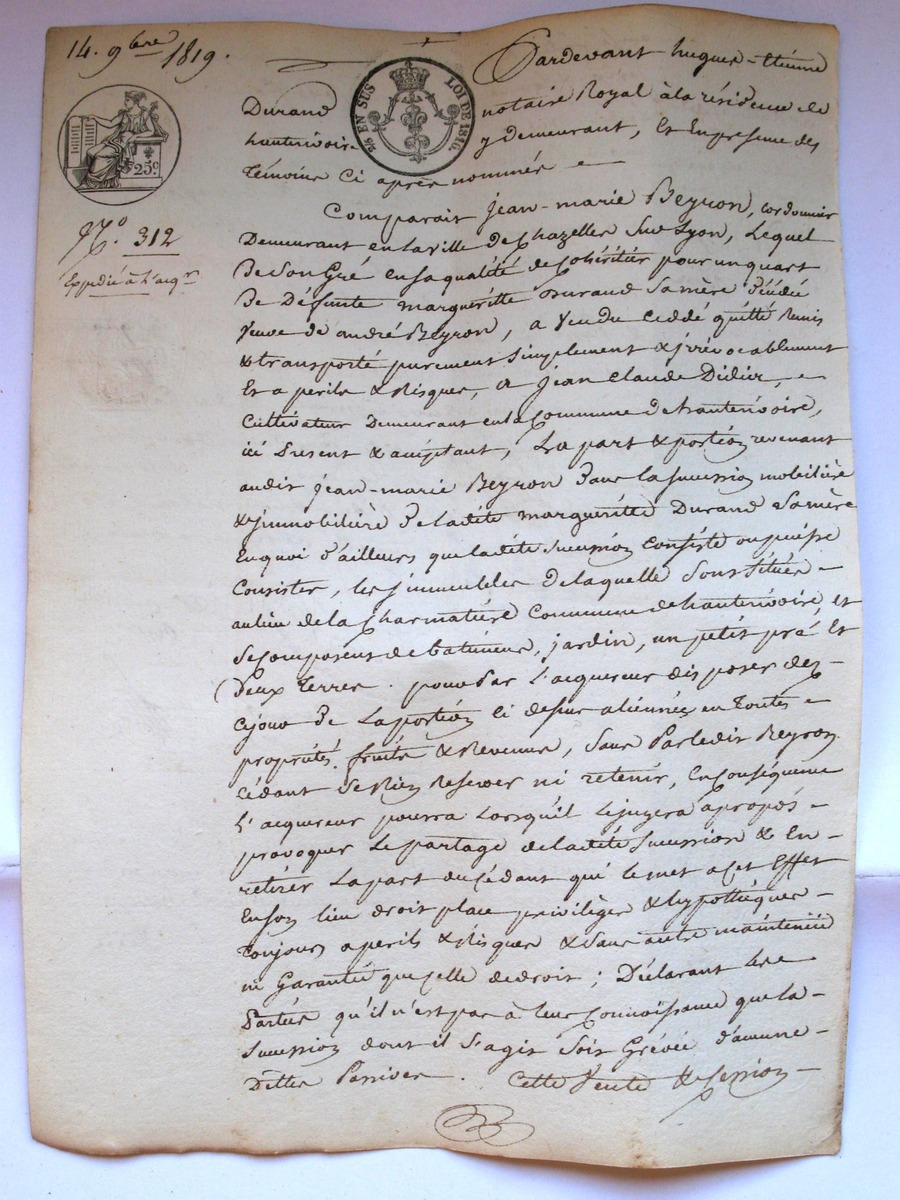 14. 9bre 1819.
EN SUS LOI DE 1816.
25c.
N.o 312
Expédié à l'acqr
Pardevant hugues-Etienne
Durand notaire Royal à la résidence de
hauterivoire y demeurant, Et En présence des
Témoins Ci après nommés
Comparait jean-marie Beyron, cordonnier
Demeurant en la ville de Chazelles Sur Lyon, Lequel
De Son Gré en sa qualité de Cohéritier pour un quart
De Défunte margueritte Durand Sa mère Décédée
Veuve de andré Beyron, a Vendu Céddé quitté Remis
& transporté purement Simplement & jrrévocablement
Et a perils & Risques, a jean Claude Didier,
Cultivateur Demeurant en la Commune de hauterivoire,
ici Présent & acceptant, La part & portion revenant
audit jean-marie Beyron Dans la succession mobiliére
& jmmobiliére De ladite margueritte Durand Sa mère
En quoi D'ailleurs que ladite Succession Consiste ou puisse
Consister, les jmmeubles de laquelle Sont Situés
au lieu de la Charmatière Commune de hauterivoire, et
Se Composent de batiments, jardin, un petit pré Et
Deux Terres. pour Par L'acquereur disposer dez
Cejour De La portion Ci dessus aliénnée en Toutes
propriétés. fruits & Revenus, Sans Par ledit Beyron
Cédant De Rien Reserver ni retenir, En Conséquence
L'acquereur pourra Lorsqu'il Le jugera àpropos
provoquer Le partage de ladite Succession & En
retirer La part du Cédant qui le met a Cet Effet
En son lieu droit place privilèges & hypothèques
Toujours a perils & Risques & Sans autre maintenüe
ni Garantie que Celle de droit; Déclarant Les
Parties qu'il n'est pas à leur Connaissance que la
Succession dont il S'agit Soit Grévée d'aucune
Dettes Passives. Cette Vente & Cession